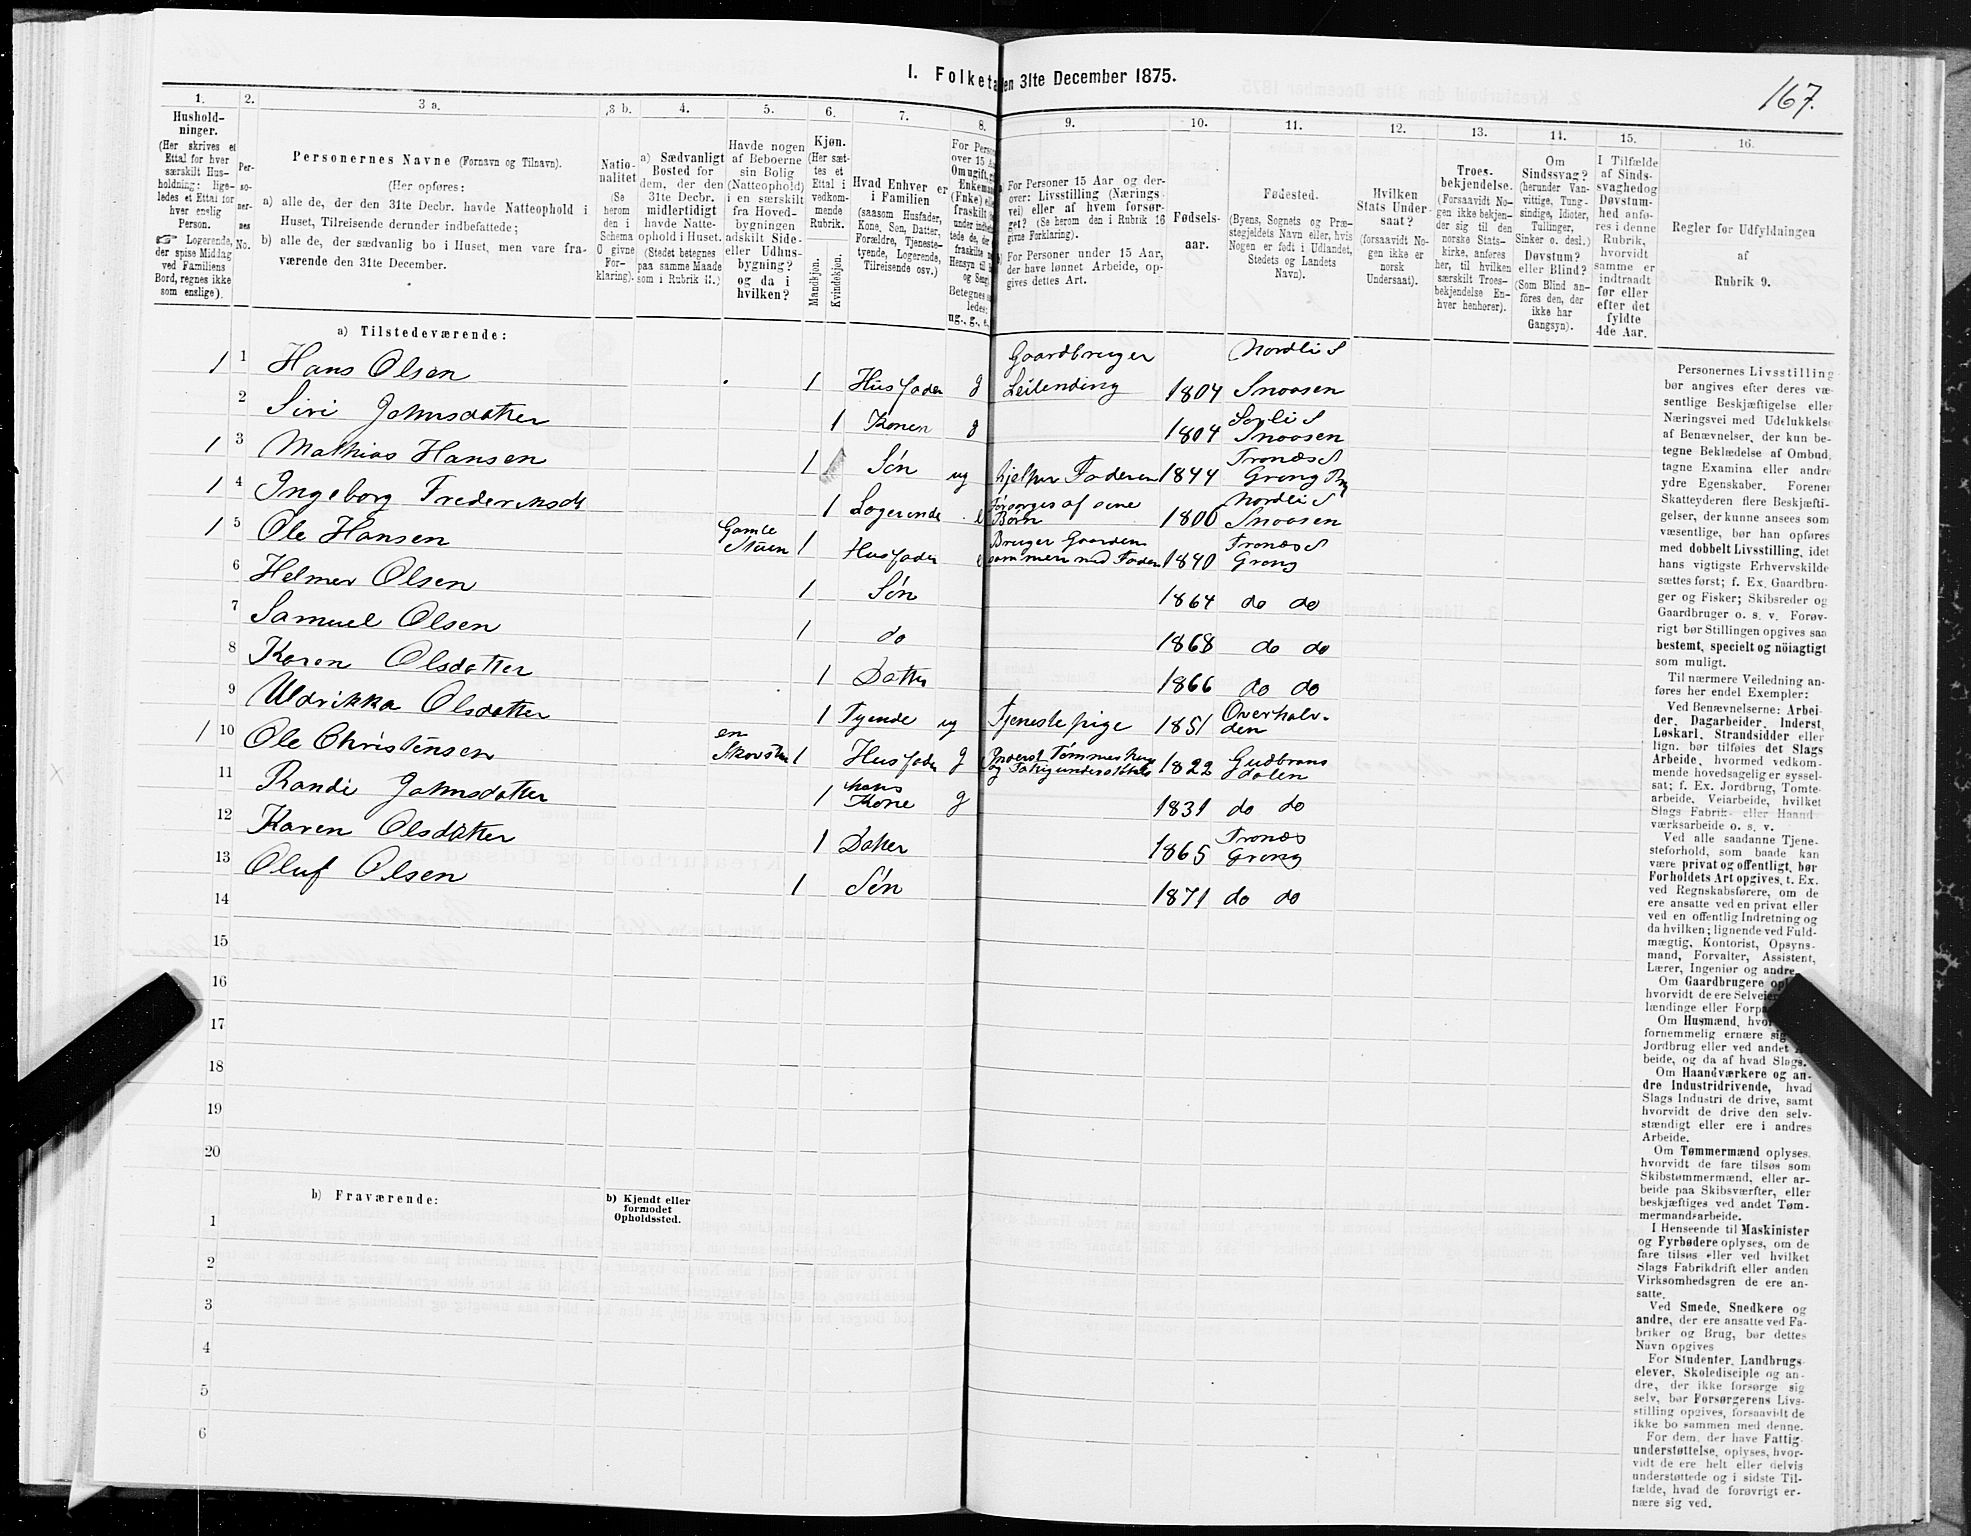 I. Folketa en 31te December 1875.
167.
1.
Hushold-
ninger.
(Her skrives et
Ettal for hver
særskilt Hus-
holdning: lige-
ledes et Ettal for
hver enslig
Person.
☞ Logerende,
der spise Middag
ved Familiens
Bord, regnes ikke
som enslige).
2.
Per-
so-
ner-
nes
No.
3 a.
Personernes Navne (Fornavn og Tilnavn).
(Her opføres:
a) alle de, der den 31te Decbr. havde Natteophold i
Huset, Tilreisende derunder indbefattede;
b) alle de, der sædvanlig bo i Huset, men vare fra-
værende den 31te December.
3 b.
Natio-
nalitet
(Se
herom
den i
Schema
0 givne
For-
klaring).
4.
a) Sædvanligt
Bosted for
dem, der den
31te Decbr.
midlertidigt
havde Natte-
ophold i Huset.
(Stedet betegnes
paa samme Maade
som i Rubrik 11.)
5.
Havde nogen
af Beboerne
sin Bolig
(Natteophold)
i en særskilt
fra Hoved-
bygningen
adskilt Side-
eller Udhus-
bygning?
og da i
hvilken?
6.
Kjøn.
(Her sæt-
tes et
Ettal i
vedkom-
mende
Rubrik.
Mandkjøn.
Kvindekjøn.
7.
Hvad Enhver er
i Familien
(saasom Husfader,
Kone, Søn, Datter,
Forældre, Tjeneste-
tyende, Logerende,
Tilreisende osv.)
8.
For Perso
over 15 Aa
Om ugift, g
Enkema
(Enke) elle
fraskilt
under indbe
tede de, der
fraskilte
Hensyn til
og Seng,
Betegnes s
ledes:
ug., g., e.,
9.
For Personer 15 Aar og der-
over: Livsstilling (Nærings-
vei) eller af hvem forsør-
get? (Se herom den i Rubrik 16
givne Forklaring).
For Personer under 15 Aar,
der have lønnet Arbeide, op-
gives dettes Art.
10.
Fødsels-
aar.
11.
Fødested.
(Byens, Sognets og Præ-
stegjeldets Navn eller, hvis
Nogen er født i Udlandet,
Stedets og Landets
Navn).
12.
Hvilken
Stats Under-
saat?
(forsaavidt No-
gen ikke er
norsk
Undersaat).
13.
Troes-
bekjendelse.
(Forsaavidt No-
gen ikke bekjen-
der sig til den
norske Stats-
kirke, anføres
her, til hvilken
særskilt Troes-
bekjendelse En-
hver henhører).
14.
Om
Sindssvag?
(herunder Van-
vittige, Tung-
sindige, Idioter,
Tullinger,
Sinker o. desl.)
Døvstum?
eller Blind?
(Som Blind an-
føres den, der
ikke har
Gangsyn).
15.
I Tilfælde
af Sinds-
svaghed og
Døvstum-
hed anfø-
res i denne
Rubrik,
hvorvidt
samme er
indtraadt
før eller
efter det
fyldte
4de Aar.
16.
Regler for Udfyldningen
af
Rubrik 9.
a) Tilstedeværende:
1 1 Hans Olsen 1 Husfader g Gaardbruger Leilending 1804 Nordli S Snaasen
2 Siri Johnsdatter 1 Konen g 1804 Sørli S Snaasen
1 3 Mathias Hansen 1 Søn ug hjelper Faderen 1844 Tronæs S Grong
1 4 Ingeborg Frederiksdt 1 Logerende e Forsørges af sine Børn 1800 Nordli S Snaasen
1 5 Ole Hansen Gamle Stuen 1 Husfader e Bruger Gaarden sammen med Fader 1840 Tronæs S Grong
6 Helmer Olsen 1 Søn 1864 do do
7 Samuel Olsen 1 do 1868 do do
8 Karen Olsdatter 1 Datter 1866 do do
9 Uldrikka Olsdatter 1 Tyende ug Tjenestepige 1851 Overhalv- den
1 10 Ole Christensen en 1 Husfader g Inderst Tømmerhug og Fattigunderstøttes 1822 Gudbrans dalen
11 Randi Johnsdatter 1 hans Kone g 1831 do do
12 Karen Olsdatter 1 Datter 1865 Tronæs Grong
13 Oluf Olsen 1 Søn 1871 do do
14
15
16
17
18
19
20
b) Fraværende:
b) Kjendt eller
formodet
Opholdssted.
1
2
3
4
5
6
Personernes Livsstilling
bør angives efter deres væ-
sentlige Beskjæftigelse eller
Næringsvei med Udelukkelse
af Benævnelser, der kun be-
tegne Beklædelse af Ombud,
tagne Examina eller andre
ydre Egenskaber. Forener
Skatteyderen flere Beskjæfti-
gelser, der kunne ansees som
væsentlige, bør han opføres
med dobbelt Livsstilling, idet
hans vigtigste Erhvervskilde
sættes først; f. Ex. Gaardbru-
ger og Fisker; Skibsreder og
Gaardbruger o. s. v. Forøv-
rigt bør Stillingen opgives saa
bestemt, specielt og nöiagtigt
som muligt.
Til nærmere Veiledning an-
føres her endel Exempler:
Ved Benævnelserne: Arbei-
der, Dagarbeider, Inderst,
Løskarl, Strandsidder eller
lign. bør tilføies det Slags
Arbeide, hvormed vedkom-
mende hovedsagelig er syssel-
sat; f. Ex. Jordbrug, Tomte-
arbeide, Veiarbeide, hvilket
Slags Fabrik- eller Haand-
værksarbeide o. s. v.
Ved alle saadanne Tjene-
steforhold, som baade kan
være privat og offentligt, bør
Forholdets Art opgives, t. Ex.
ved Regnskabsførere, om de
ere ansatte ved en privat eller
ved en offentlig Indretning og
da hvilken; lignende ved Fuld-
mægtig, Kontorist, Opsyns-
mand, Forvalter, Assistent,
Lærer, Ingeniør og andre.
Om Gaardbrugere op
hvorvidt de ere Selveier
lændinge eller Forpa
Om Husmænd, hvo
fornemmelig ernære sig
Jordbrug eller ved andet A
beide, og da af hvad Slags.
Om Haandværkere og an-
dre Industridrivende, hvad
Slags Industri de drive, samt
hvorvidt de drive den selv-
stændigt eller ere i andres
Arbeide.
Om Tømmermænd oplyses,
hvorvidt de fare tilsøs som
Skibstømmermænd, eller ar-
beide paa Skibsværfter, eller
beskjæftiges ved andet Tøm-
mermandsarbeide.
I Henseende til Maskinister
og Fyrbødere oplyses, om de
fare tilsøs eller ved hvilket
Slags Fabrikdrift eller anden
Virksomhedsgren de ere an-
satte.
Ved Smede, Snedkere og
andre, der ere ansatte ved Fa-
briker og Brug, bør dettes
Navn opgives
For Studenter, Landbrugs-
elever, Skoledisciple og an-
dre, der ikke forsørge sig
selv, bør Forsørgerens Livs-
stilling opgives, forsaavidt de
ikke bo sammen med denne.
For dem, der have Fattig-
understøttelse, oplyses, hvor-
vidt de ere helt eller delvis
understøttede og i sidste Til-
fælde, hvad de forøvrigt er-
nære sig ved.